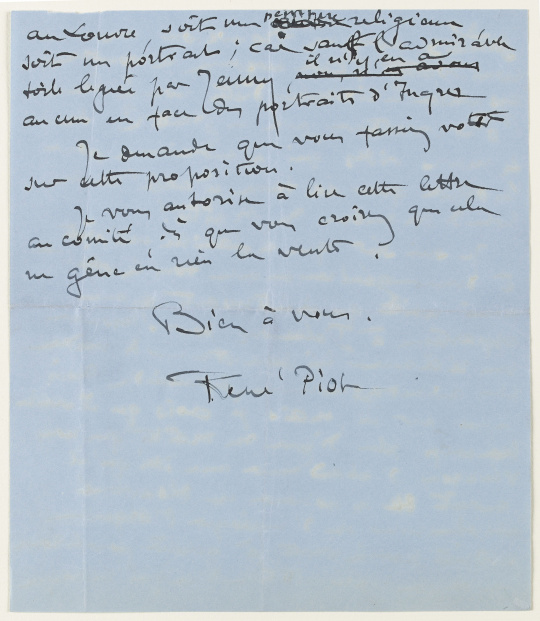 au Louvre, soit une peinture religieuse
soit un portrait ; car sauf l'admirable
toile léguée par Jenny, il n'y en a
aucun en face des portraits d'Ingres
Je demande que vous fassiez voter
sur cette proposition.
Je vous autorise à lire cette lettre
au comité si que vous croirez que cela
ne gêne en rien la vente.
Bien à vous.
René Piot